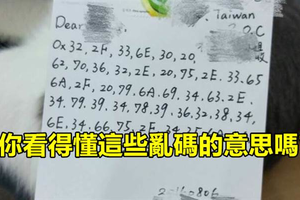 Dear
Taiwan
R.O.C
0x32, 2F, 33, 6E, 30, 20,
62, 70, 36, 32, 2E, 20, 75, 2E, 33. 65
6A, 2F, 20, 79. 6A. 69. 34. 63. 2E.
34. 79. 39. 34. 78. 39. 36. 32. 38, 34,
6E, 34. 66, 75, 2F
你看得懂這些亂碼的意思嗎